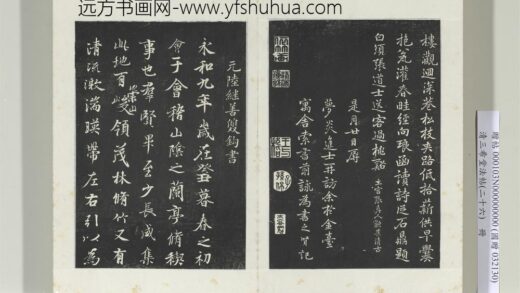 远方书画网-www.yfshuhua.com
樓觀迴深蒼松枝夾路低拾薪供早爨
抱瓮灌春畦經向琅函讀詩従石鼎題
白須張道士送客過桃谿
是月廿日
夢炎進士再訪余於金臺
寓舍索書前詠為書之
元陸繼善雙鈎書
永和九年歲在癸丑暮春之初
會于會稽山陰之蘭亭脩稧
事也羣賢畢至少長咸集
此地有崇山峻領茂林脩竹又有
清流激湍暎帶左右引以為
贈帖 000103N000000000 (國贈 032130)
清三希堂法帖(二十六) 冊